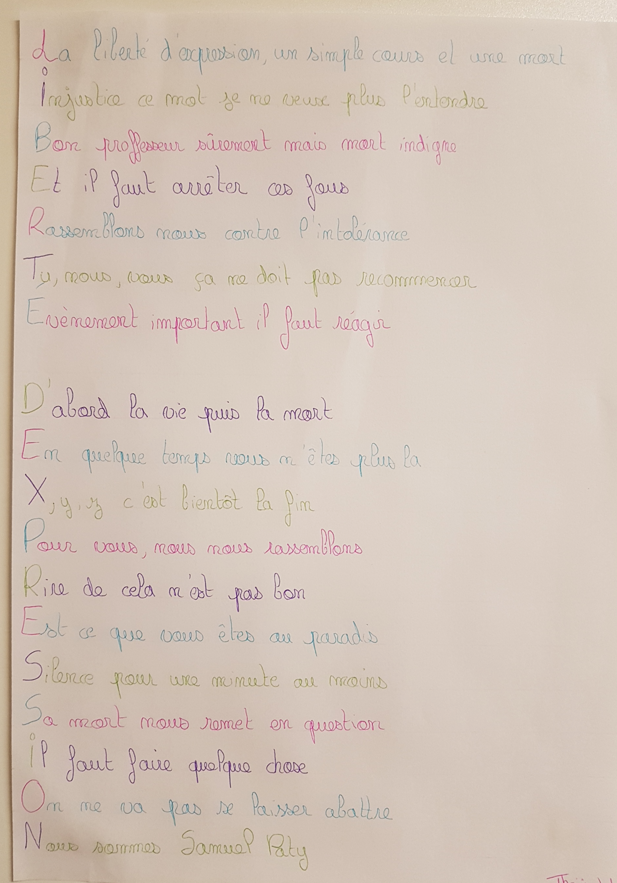 La liberté d'expression, un simple cours et une mort
Injustice ce mot je ne veux plus l'entendre
Bon proffesseur sûrement mais mort indigne
Et il faut arrêter ces fous
Rassemblons nous contre l'intolérance
Tu, nous, vous ça ne doit pas recommencer
Evènement important il faut réagir
D'abord la vie puis la mort
En quelque temps vous n'êtes plus la
X, y, z c'est bientôt la fin
Pour vous, nous nous rassemblons
Rire de cela n'est pas bon
Est ce que vous êtes au paradis
Silence pour une minute au moins
Sa mort nous remet en question
il faut faire quelque chose
On ne va pas se laisser abattre
Nous sommes Samuel Paty